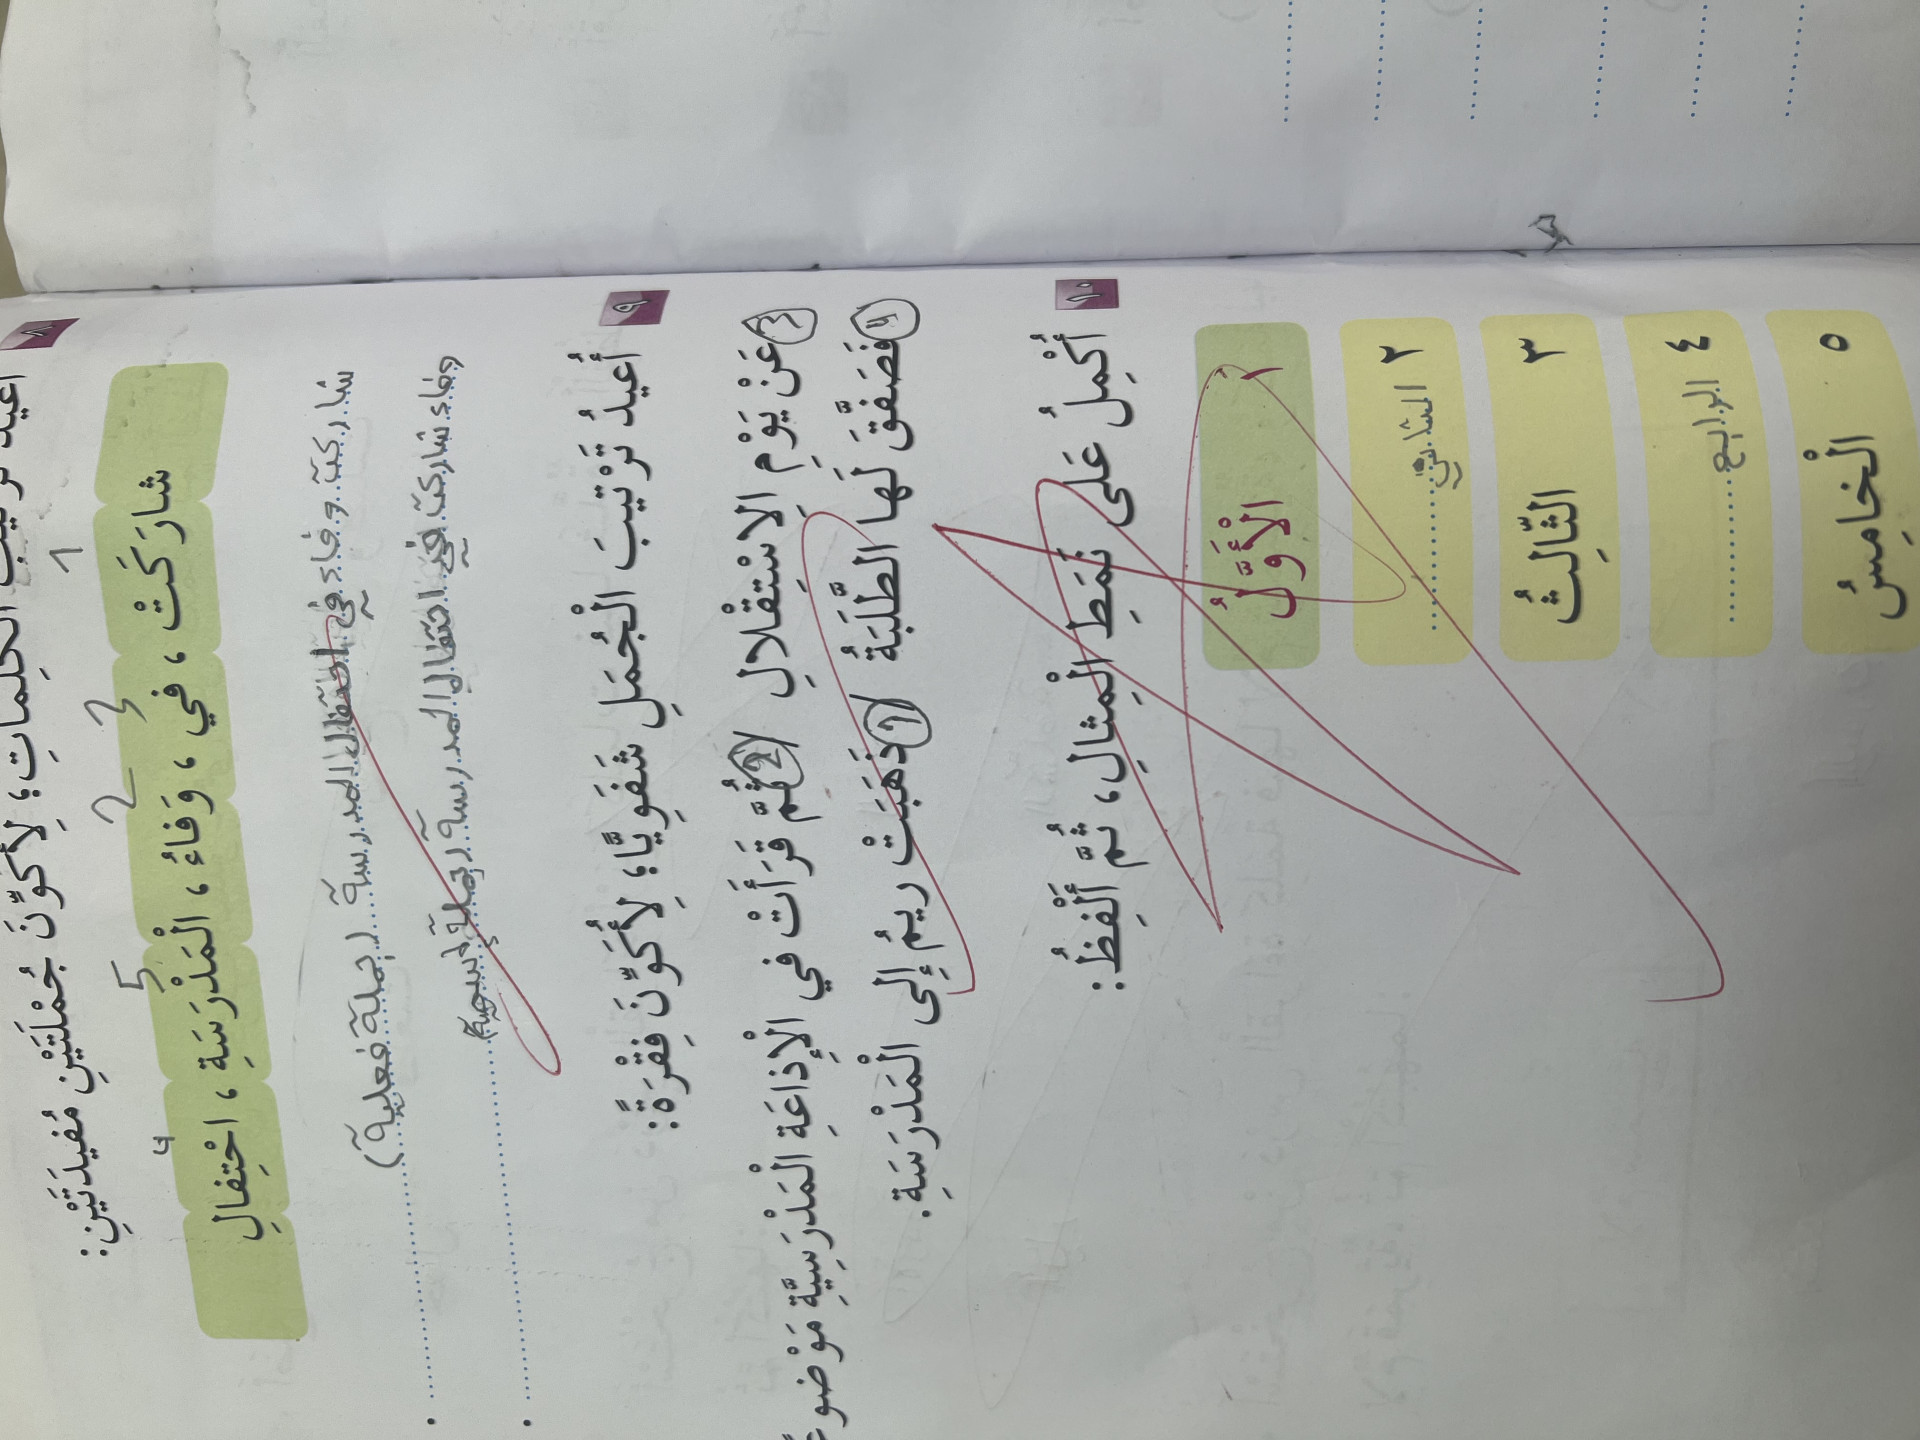 ٨
أُعيدُ تَرْتيبَ الْكَلِماتِ؛ لِأُكَوِّنَ جُمْلَتَيْنِ مُفيدَتَيْنِ:
1 3 2 5 4
شارَكَتْ ، في ، وَفاءُ ، الْمَدْرَسَةِ ، احْتِفالِ
شاركت وفاء في احتفال المدرسة (جملة فعلية)
وفاء شاركت في احتفال المدرسة جملة اسمية
٩
أُعيدُ تَرْتيبَ الْجُمَلِ شَفَوِيًّا؛ لِأُكَوِّنَ فِقْرَةً:
3 عَنْ يَوْمِ الِاسْتِقْلالِ / 2 ثُمَّ قَرَأَتْ في الْإِذاعَةِ الْمَدْرَسِيَّةِ
4 فَصَفَّقَ لَها الطَّلَبَةُ / 1 ذَهَبَتْ ريمُ إِلى الْمَدْرَسَةِ.
١٠
أُكْمِلُ عَلى نَمَطِ الْمِثالِ، ثُمَّ أَلْفِظُ:
١ الْأَوَّلُ
٢ الثاني
٣ الثّالِثُ
٤ الرابع
٥ الْخامِسُ